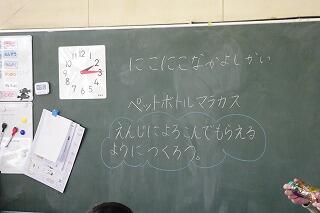 にこにこなかよしかい
ペットボトルマラカス
えんじによろこんでもらえる
ようにつくろう。
12
1
2
3
4
5
6
7
8
9
10
11